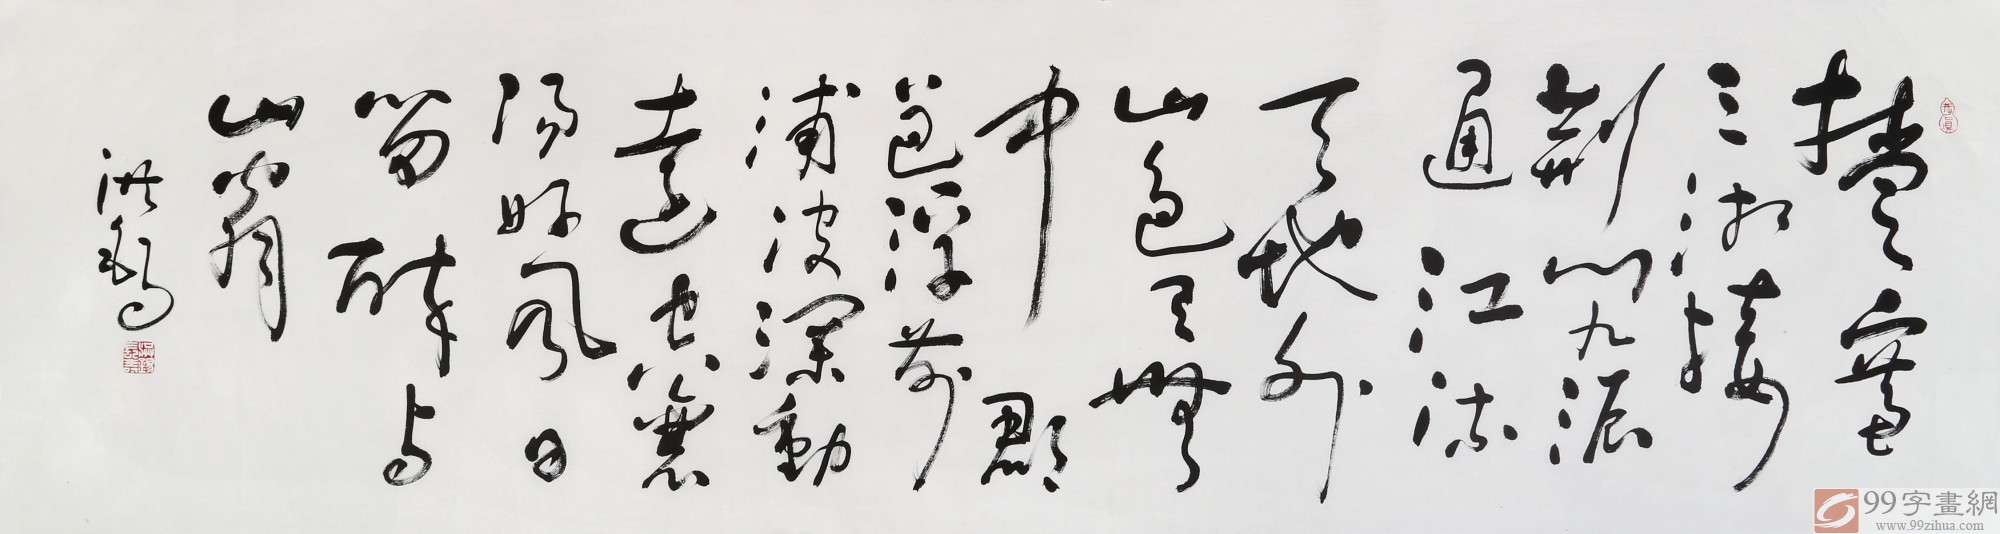 楚塞
三湘接
荆门九派
通江流
天地外
山色有無
中郡
邑浮前
浦波澜動
遠空襄
陽好風日
留醉与
山翁
洪
99字畫網
www.99zihua.com